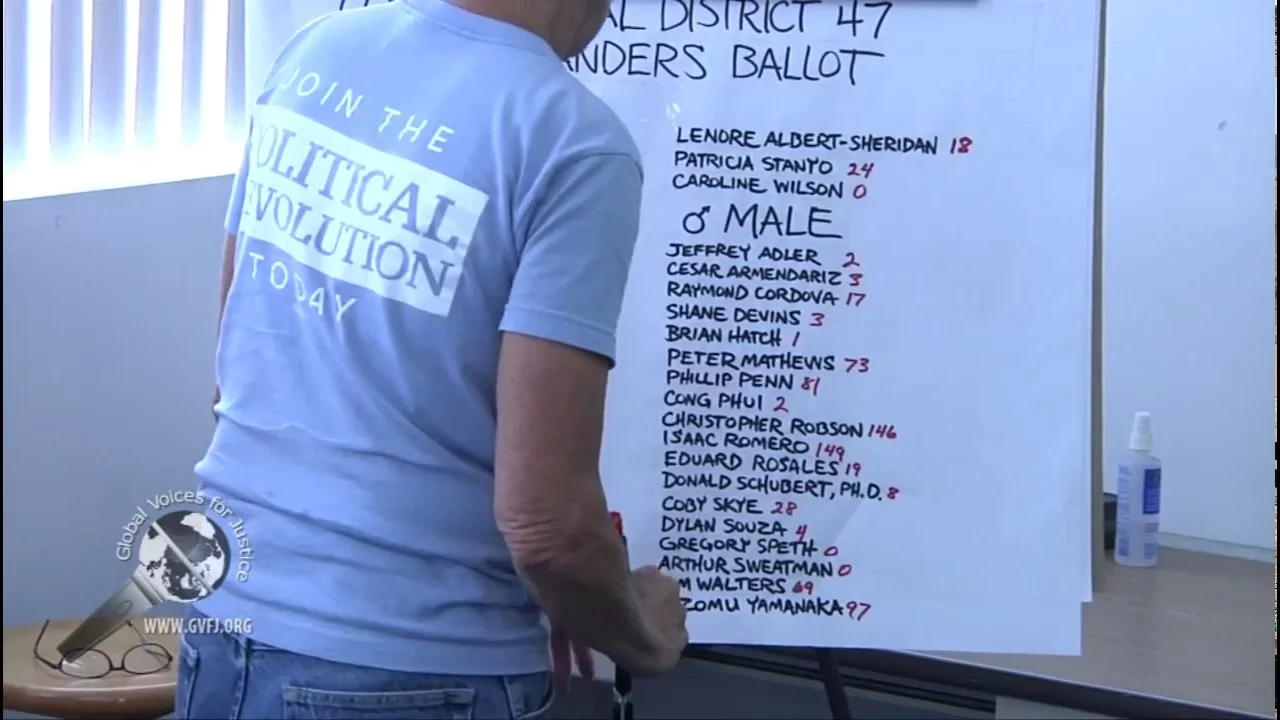 AL DISTRICT 47
ANDERS BALLOT
LENORE ALBERT-SHERIDAN 18
PATRICIA STANYO 24
CAROLINE WILSON 0
♂ MALE
JEFFREY ADLER 2
CESAR ARMENDARIZ 3
RAYMOND CORDOVA 17
SHANE DEVINS 3
BRIAN HATCH 1
PETER MATHEWS 73
PHILLIP PENN 81
CONG PHUI 2
CHRISTOPHER ROBSON 146
ISAAC ROMERO 149
EDUARD ROSALES 19
DONALD SCHUBERT, PH.D. 8
COBY SKYE 28
DYLAN SOUZA 4
GREGORY SPETH 0
ARTHUR SWEATMAN 0
M WALTERS 69
ZOMU YAMANAKA 97
JOIN THE
POLITICAL
EVOLUTION
TODAY
Global Voices for Justice
WWW.GVFJ.ORG